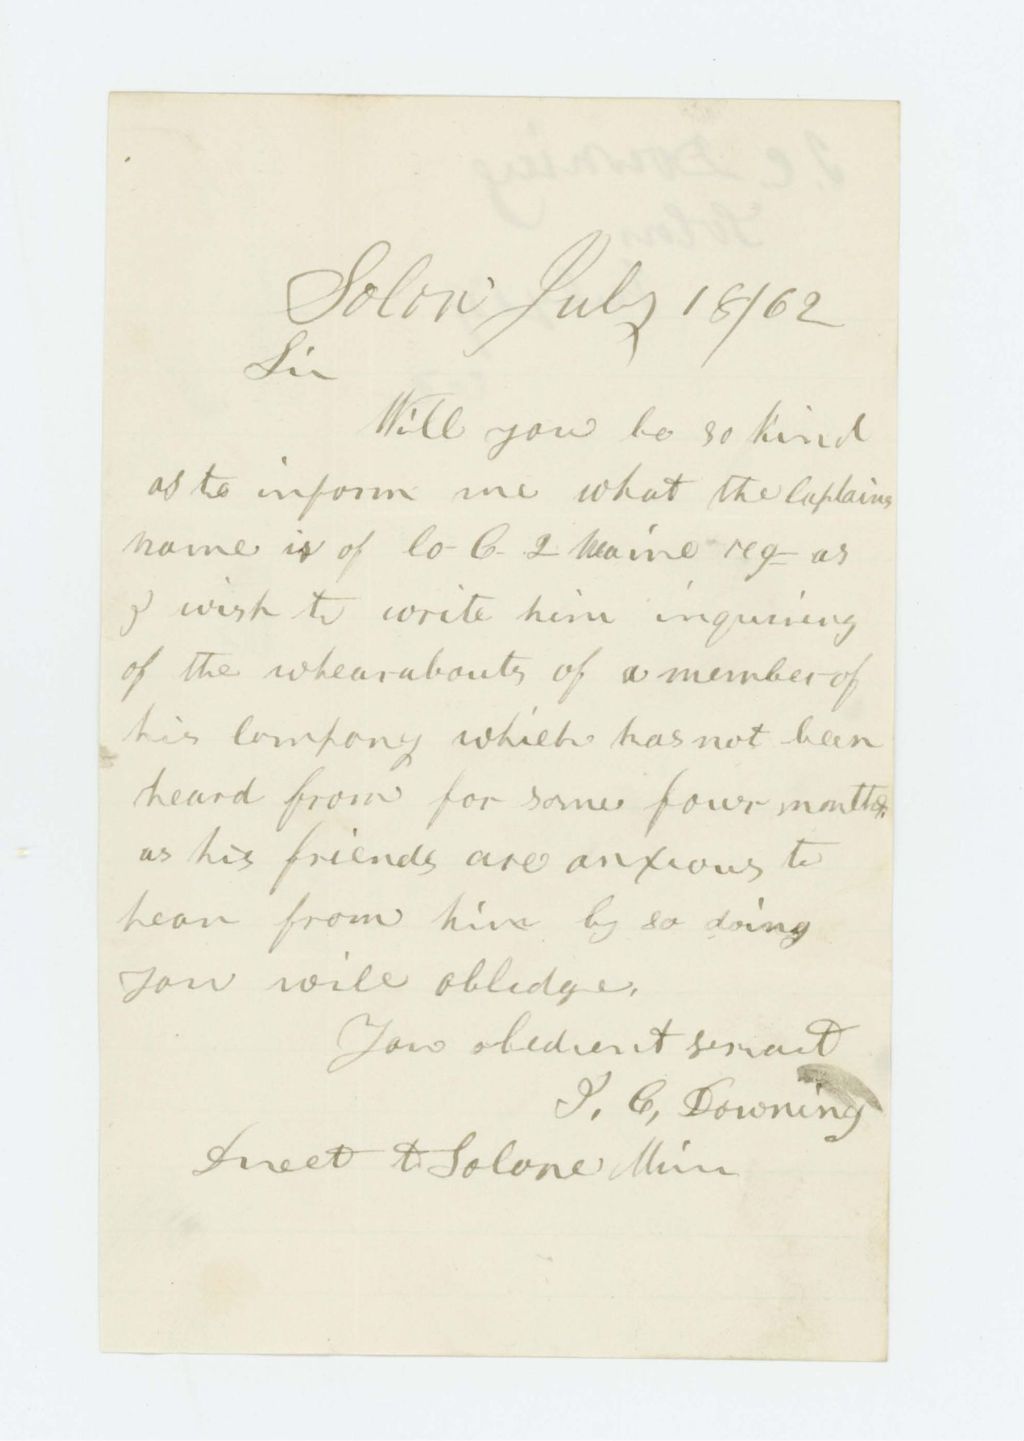 Solon July 18/62
Sir
Will you be so kind
as to inform me what the Captains
name is of Co C 2 Maine reg as
I wish to write him inquiring
of the whearabouts of a member of
his Company which has not been
heard from for some four months.
as his friends are anxious to
hear from him by so doing
you will obledge.
Your obedient servant
C. Downing
Direct to Solone